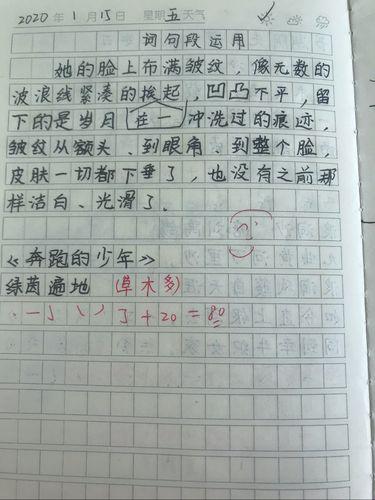 2020年 1月 15日 星期五 天气
词句段运用
她的脸上布满皱纹，像无数的
波浪线紧凑的挨起，凹凸不平，留
下的是岁月在一冲洗过的痕迹，
皱纹从额头、到眼角、到整个脸，
皮肤一切都下垂了，也没有之前那
样洁白、光滑了。
《奔跑的少年》
绿茵遍地 (草木多)
+20=80